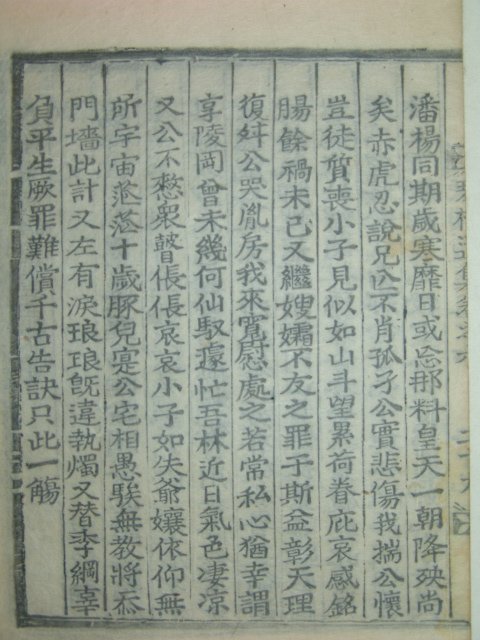 潘楊同期歲寒靡日或忘那料皇天一朝降殃尚
矣赤虎忍說兄亾不肖孤孑公實悲傷我揣公懷
豈徒質喪小子見似如山斗望累荷眷庇哀感銘
腸餘禍未已又繼嫂孀不友之罪于斯益彰天理
復舛公哭胤房我來寬慰處之若常私心猶幸謂
享陵岡曾未幾何仙馭遽忙吾林近日氣色凄凉
又公不憗衆瞽倀倀哀哀小子如失爺孃依仰無
所宇宙茫茫十歲豚兒寔公宅相愚騃無教將忝
門墻此計又左有淚琅琅旣違執燭又替李綱辜
負平生厥罪難償千古告訣只此一觴